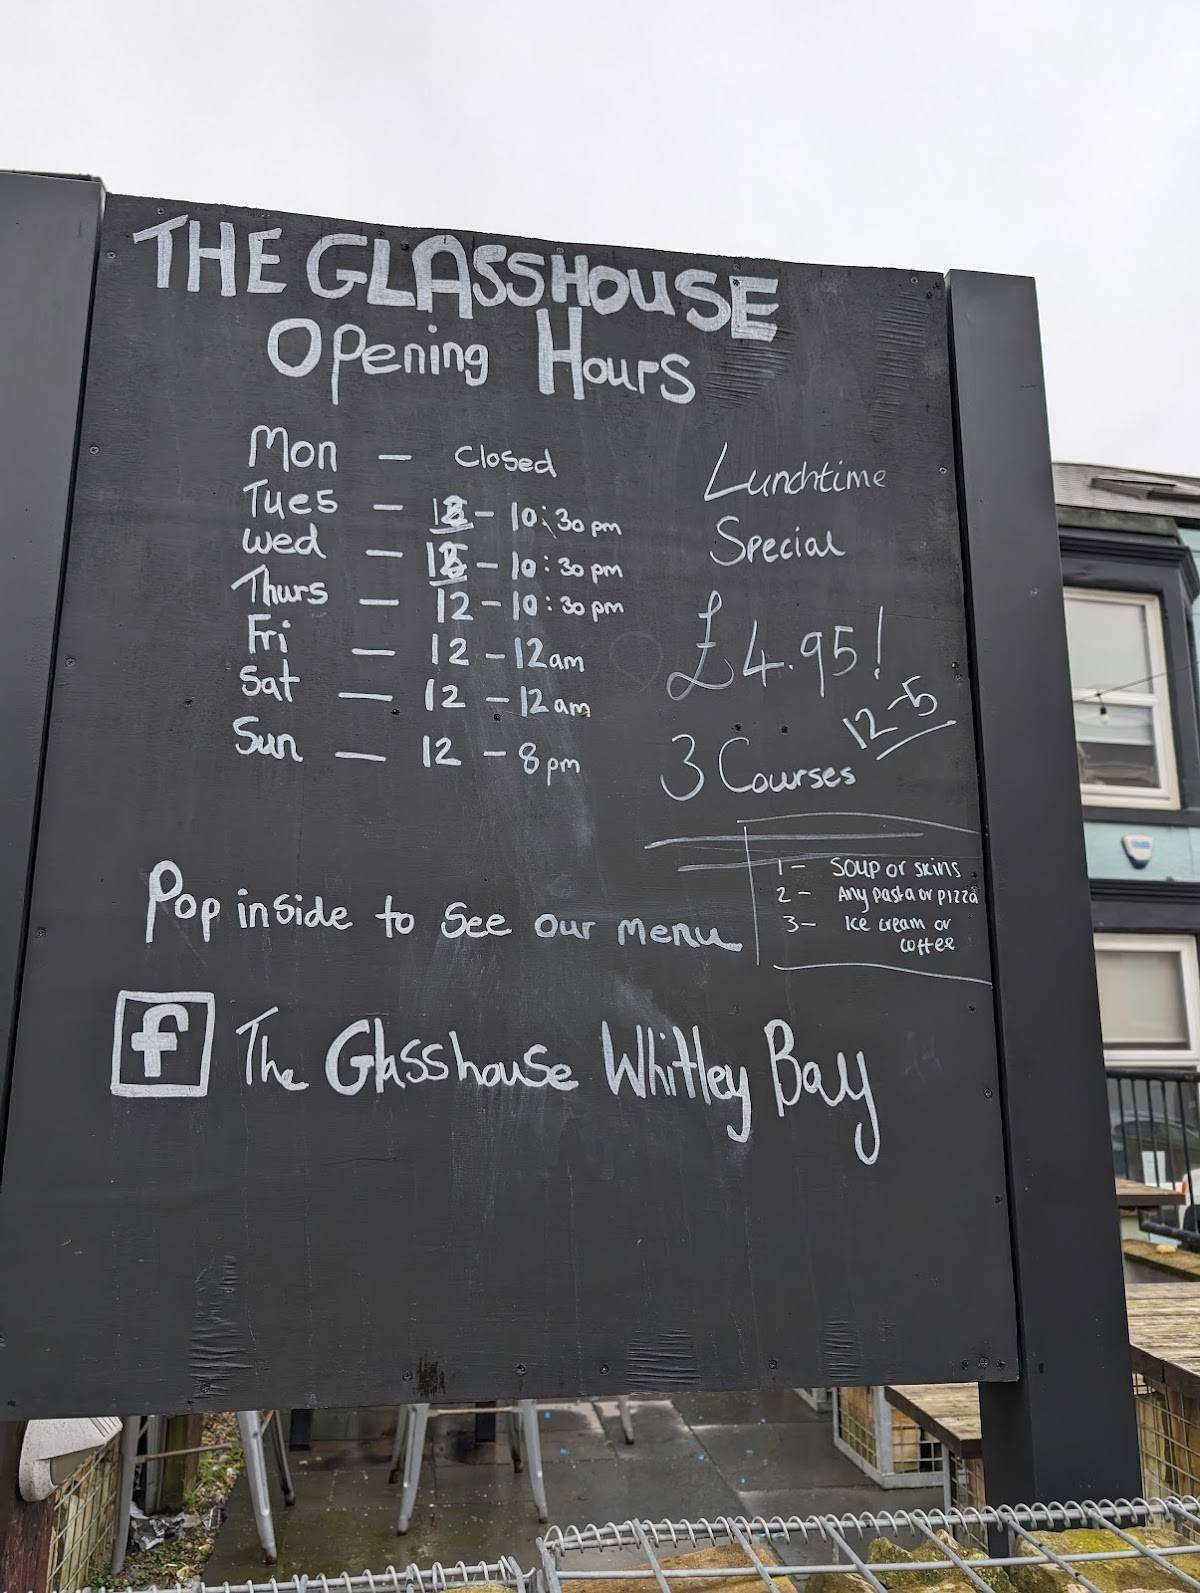 THE GLASSHOUSE
Opening Hours
Mon — Closed
Tues — 12 - 10:30pm
Wed — 12 - 10:30pm
Thurs — 12 - 10:30pm
Fri — 12 - 12am
Sat — 12 - 12am
Sun — 12 - 8pm
Lunchtime
Special
£4.95!
12-5
3 Courses
1 - Soup or skins
2 - Any pasta or pizza
3 - Ice cream or
coffee
Pop inside to see our menu
f The Glasshouse Whitley Bay